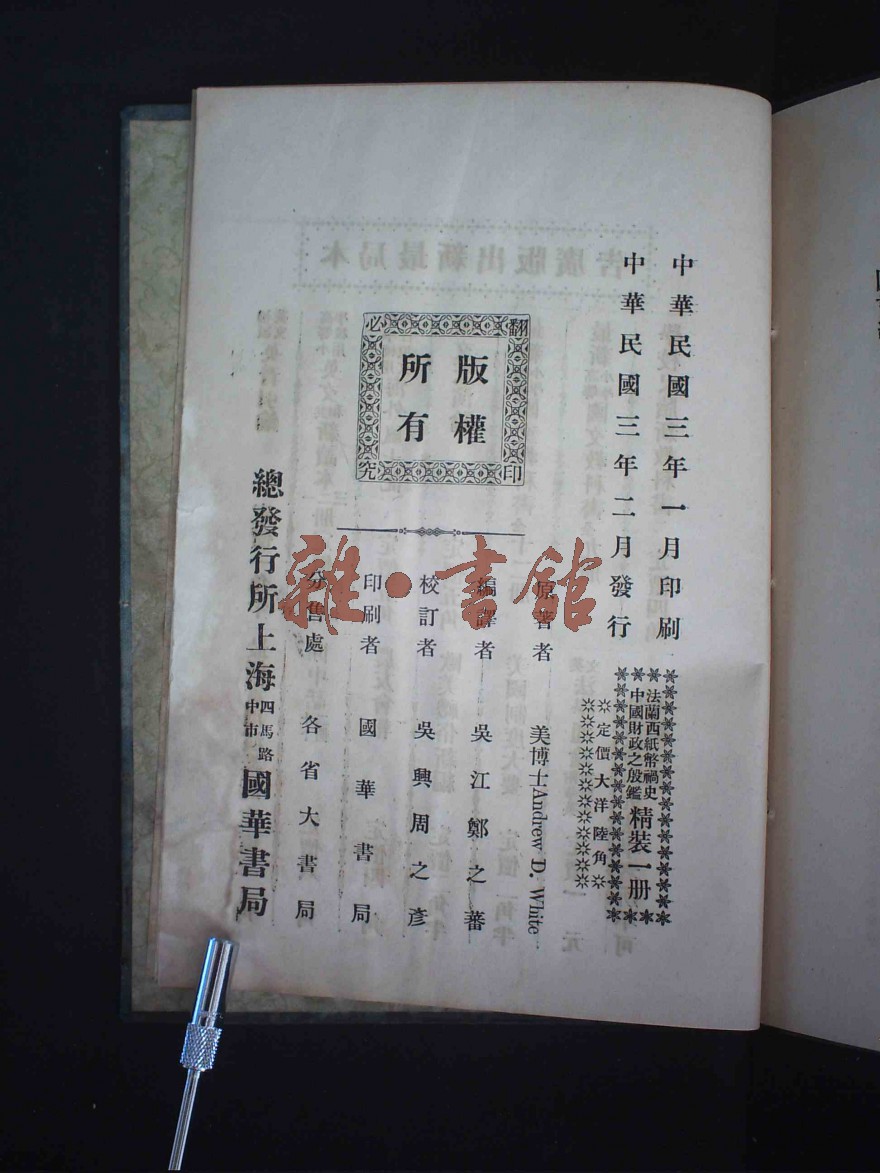 中華民國三年一月印刷
中華民國三年二月發行
法蘭西紙幣禍史
中國財政之殷鑑
精裝一册
定價大洋陸角
翻印必究
版權
所有
原著者 美博士Andrew D. White
編譯者 吳江鄭之蕃
校訂者 吳興周之彥
印刷者 國華書局
分售處 各省大書局
總發行所上海四馬路中市國華書局
雜·書館
本局最新出版廣告